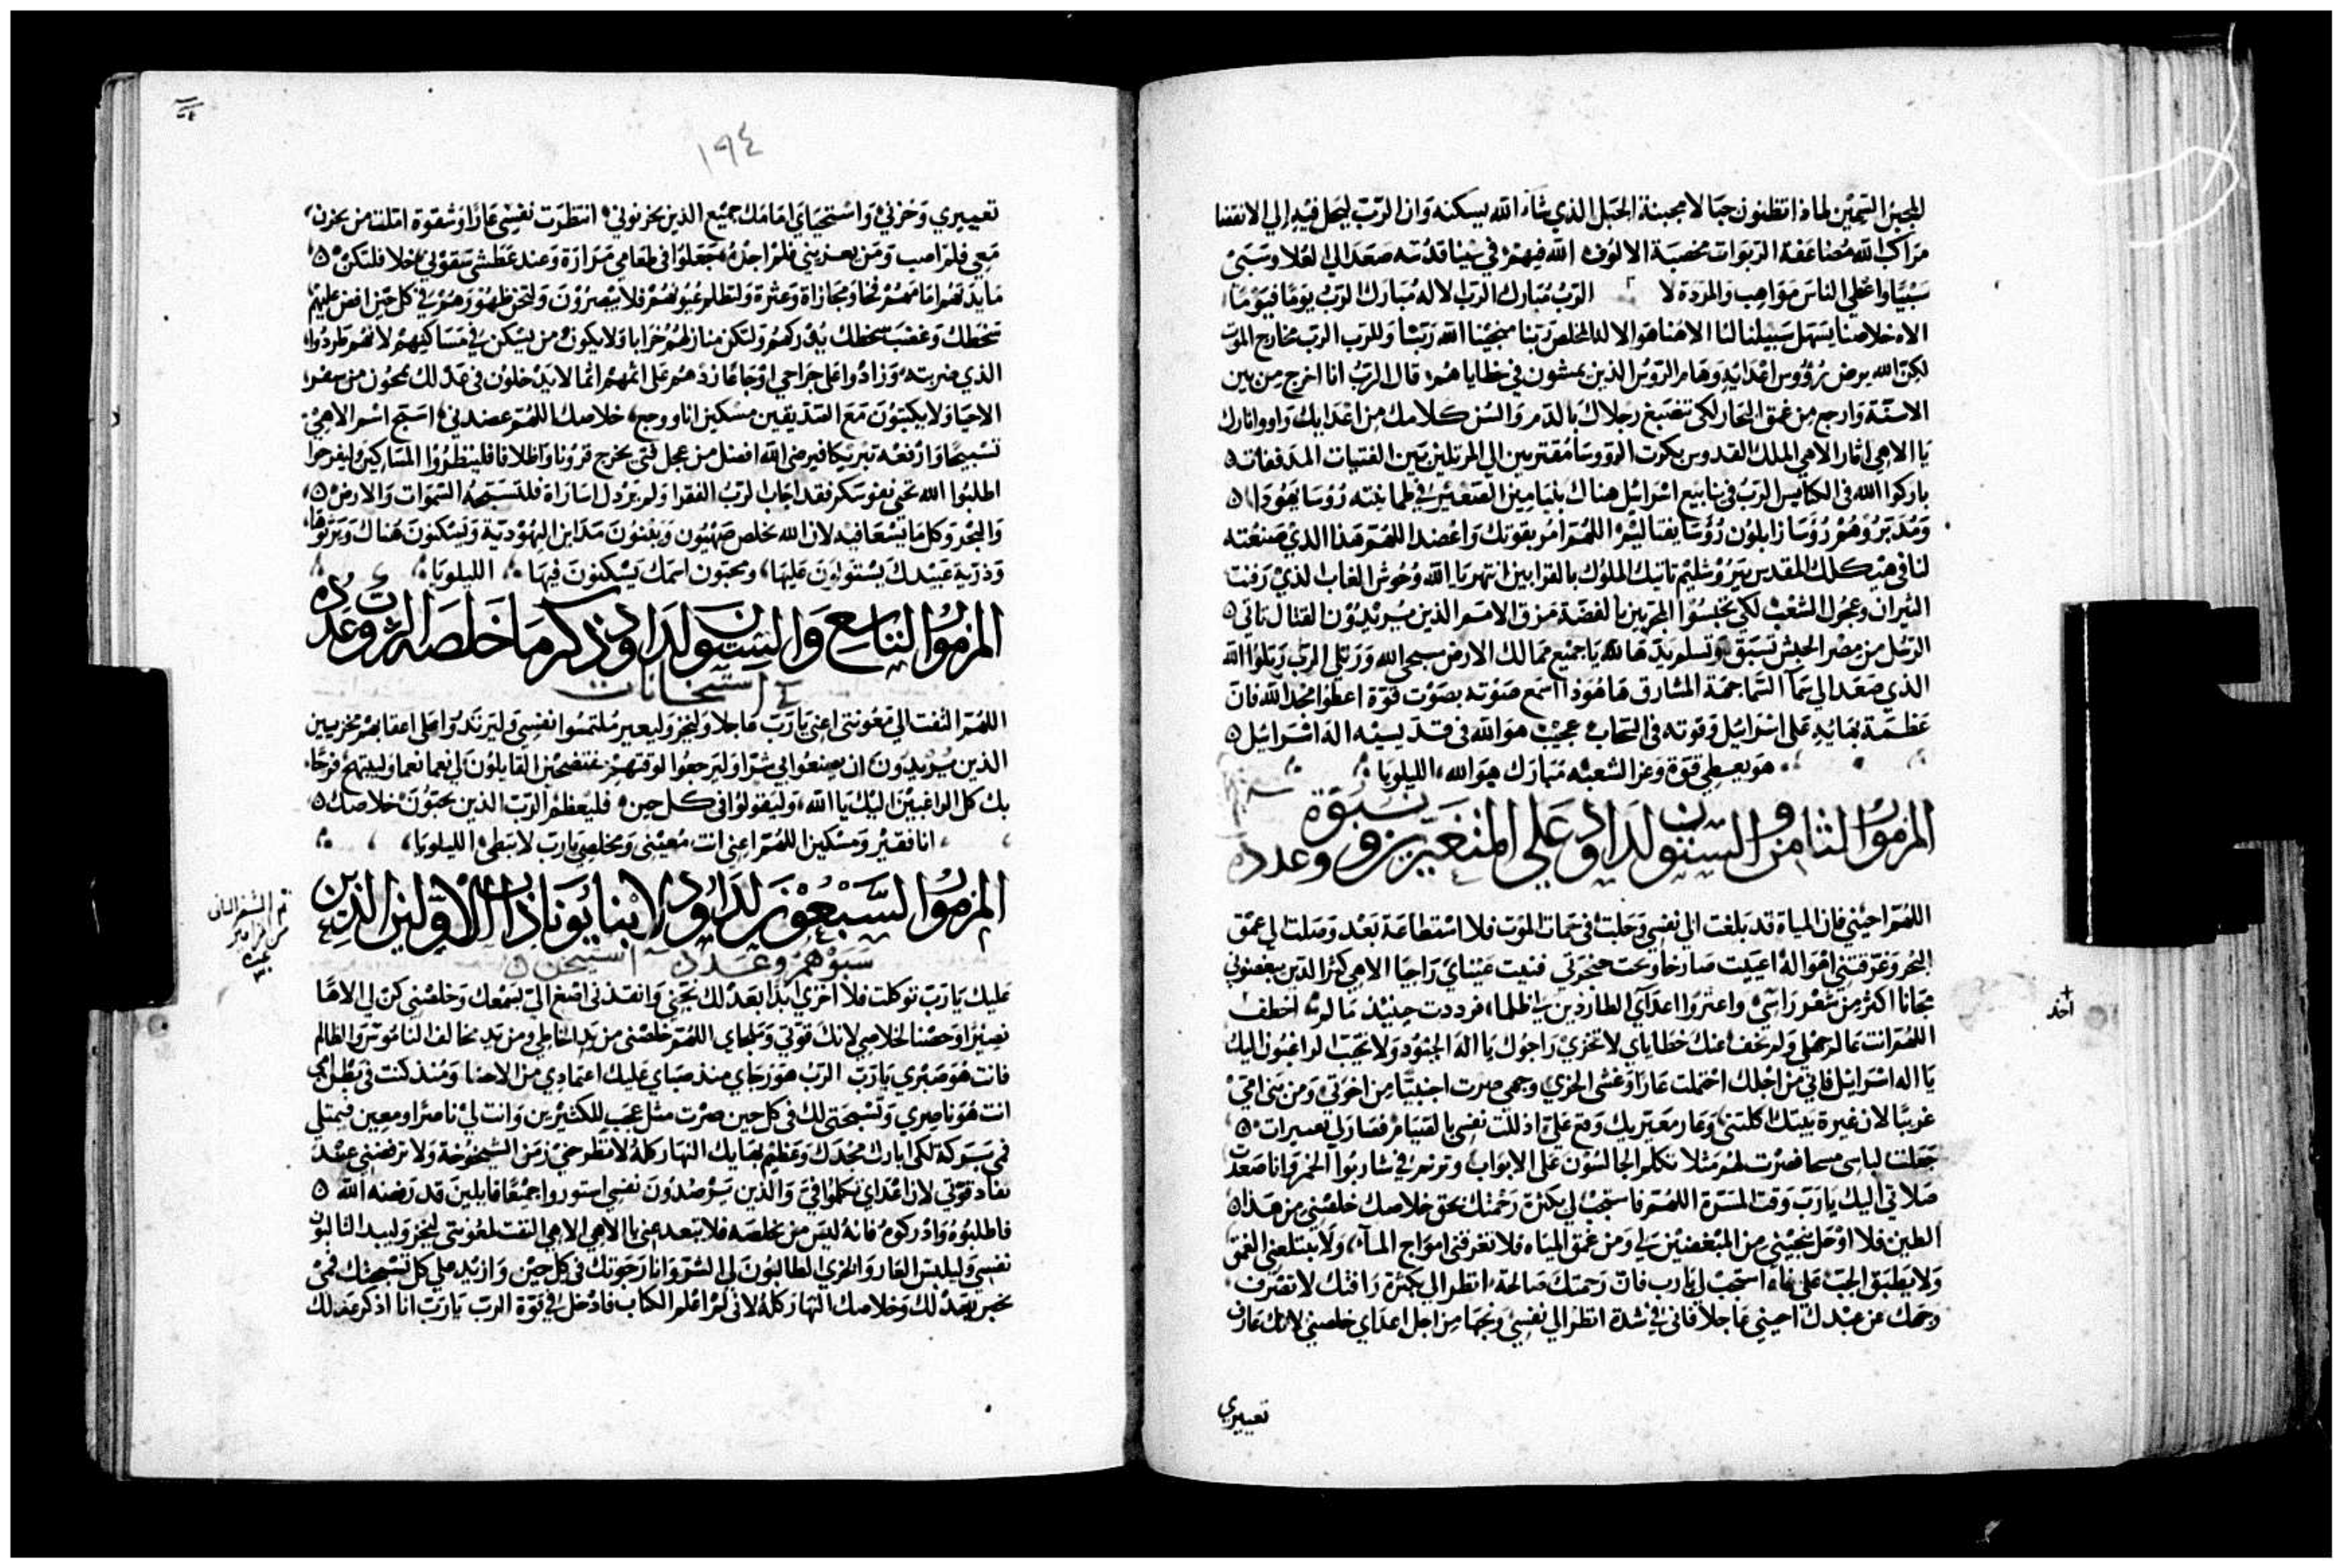 المجبن السمين لماذا تظنون جبالا مجبنة الجبل الذي شاء الله يسكنه وان الرب ليحل فيه إلي الانقضا
مراكب الله مضاعفة الربوات مخصبة الالوف الله فيهم في سينا قدسه صعد الي العلا وسبي
سبيا واعطي الناس مواهب والمردة لا الرب مبارك الرب الاله مبارك الرب يوما فيوما
الاه خلاصنا يسهل سبيلنا لنا الاهنا هو الا له المخلص ربنا منجينا الله ربنا وللرب الرب مخارج الموت
لكن الله يرض رؤوس اعدايه وهام الروس الذين يمشون في خطاياهم قال الرب انا اخرج من بين
الاسنة وارجع من عمق البحار لكي تصبغ رجلاك بالدم والسن كلابك من اعدايك
يا الاهي اثار الاهي الملك القدوس بكرت الروسا مقتربين الي المرتلين بين الفتيات المدففات
باركوا الله في الكنايس الرب في ينابيع اسرائيل هناك بنيامين الصغير في طمانينته رؤسا يهودا
ومدبروهم رؤسا زابلون رؤسا يفتاليم اللهم امر بقوتك واعضد اللهم هذا الذي صنعته
لنا في هيكلك المقدس بيروشليم تاتيك الملوك بالقرابين انتهر يا الله وحوش الغاب الذي
الثيران وعجول الشعب لكي يحبسوا المجربين بالفضة مزق الامم الذين يريدون القتال تاتي
الرسل من مصر الحبش تسبق وتسلم يدها لله يا جميع ممالك الارض سبحي الله ورتلي الرب رتلوا الله
الذي صعد الي سمآ السما جهة المشارق ها هوذا اسمع صوته بصوت قوة اعطوا مجدا لله فان
عظمة بهايه علي اسرائيل وقوته في السحاب عجيب هو الله في قديسيه اله اسرائيل
هو يعطي قوة وعزا لشعبه مبارك هو الله الليلويا
المزمور الثامن والستون لداود علي المتغيرين ونبوة
وعدده
اللهم احيني فان المياه قد بلغت الي نفسي وحلبت في حمات الموت فلا استطاعة بعد وصلت الي عمق
البحر وغرقتني امواله اعييت صارخا وبحت حنجرتي فنيت عيناي راجيا الاهي كثر الذين يبغضوني
مجانا اكثر من شعور راسي واعتزوا اعدآي الطاردين لي ظلما فرددت حينيذ ما لم اخطف
اللهم انت عالم جهلي ولم تخف عنك خطاياي لا تخزي راجوك يا اله الجنود ولا تخيب الراغبون اليك
يا اله اسرائيل فاني من اجلك احتملت عارا وغشي الخزي وجهي صرت اجنبيا من اخوتي ومن بني امي
غريبا لان غيرة بيتك اكلتني وعار معيريك وقع علي اذللت نفسي بالصيام فصار لي تعييرات
جعلت لباسي مسحا فصرت لهم مثلا تكلم الجالسون علي الابواب وترنم في شاربوا الخمر وانا صعدت
صلاتي اليك يا رب وقت المسرة اللهم فاستجب لي بكثرة رحمتك بحق خلاصك خلصني من هذا
الطين فلا اوحل نجيني من المبغضين لي ومن عمق المياه فلا تغرقني امواج المآء ولا يبتلعني العمق
ولا يطبق الجب علي فاه استجب لي يا رب فان رحمتك صالحة انظر الي بكثرة رافتك لا تصرف
وجهك عن عبدك احيني عاجلا فاني في شدة انظر الي نفسي ونجها من اجل اعداي خلصني لانك عارف
تعييري
١٩٤
تعييري وخزني واستحياي امامك جميع الذين يحزنوني انتظرت نفسي عارا وشقوة املت من يحزن
معي فلم اصب ومن يعزيني فلم اجده جعلوا في طعامي مرارة وعند عطشي سقوني خلا فلتكن
مايدتهم امامهم فخا ومجازاة وعثرة ولتظلم عيونهم فلا يبصرون ولتحن ظهورهم في كل حين افض عليهم
سخطك وغضب سخطك يدركهم ولتكن منازلهم خرابا ولا يكون من يسكن في مساكنهم لانهم طردوا
الذي ضربته وزادوا علي جراحي اوجاعا زدهم علي اثمهم اثما لا يدخلون في عدلك يمحون من سفر
الاحيا ولا يكتبون مع الصديقين مسكين انا ووجع خلاصك اللهم عضدني اسبح اسم الاهي
تسبيحا وارفعه تبريكا فيرضي الله افضل من عجل فتي يخرج قرونا واظلافا فلينظروا المساكين وليفرحوا
اطلبوا الله تحيي نفوسكم فقد اجاب الرب الفقرا ولم يرذل اساراه فلتسبحه السموات والارض
والبحر وكل ما يسعا فيه لان الله يخلص صهيون ويبنون مداين اليهودية ويسكنون هناك ويرثوها
وذرية عبيدك يستولون عليها ومحبون اسمك يسكنون فيها الليلويا
المزمور التاسع والستون لداود ذكر ما خلصه الرب وعدده
استيخانات
اللهم التفت الي معونتي اعني يا رب عاجلا وليخز وليعير ملتمسوا نفسي وليرتدوا علي اعقابهم مخزيين
الذين يريدون ان يصنعوا بي شرا وليرجعوا لوقتهم مفتضحين القايلون لي نعما نعما وليبتهج فرحا
بك كل الراغبين اليك يا الله وليقولوا في كل حين فليعظم الرب الذين يحبون خلاصك
انا فقير ومسكين اللهم اعني انت معيني ومخلصي يا رب لا تبطي الليلويا
المزمور السبعون لداود لابنا يوناذاب الاولين الذين
سبوهم وعدده استيخن
عليك يا رب توكلت فلا اخزي ابدا بعدلك نجني وانقذني اصغ الي بسمعك وخلصني كن لي الاها
نصيرا وحصنا لخلاصي لانك قوتي وملجاي اللهم خلصني من يد الخاطي ومن يد مخالف الناموس والظالم
فانت هو صبري يا رب الرب هو رجاي منذ صباي عليك اعتمادي من الاحشا ومنذ كنت في بطن امي
انت هو ناصري وتسبحتي لك في كل حين صرت مثل عجب للكثيرين وانت لي ناصرا ومعين فيمتلي
فمي بركة لكي ابارك مجدك وعظيم بهايك النهار كله لا تطرحني زمن الشيخوخة ولا ترفضني عند
نفاد قوتي لان اعداي تكلموا في والذين يرصدون نفسي استوروا جميعا قايلين قد رفضه الله
فاطلبوه وادركوه فانه ليس من يخلصه فلا تبعد عني يا الاهي الاهي التفت لمعونتي ليخز وليبيد الثالبون
نفسي وليلبس العار والخزي الطالبون لي الشر وانا رجوتك في كل حين وازيد علي كل تسبحتك فمي
يخبر بعدلك وخلاصك النهار كله لاني لم اعلم الكتاب فادخل في قوة الرب يا رب انا اذكر عدلك